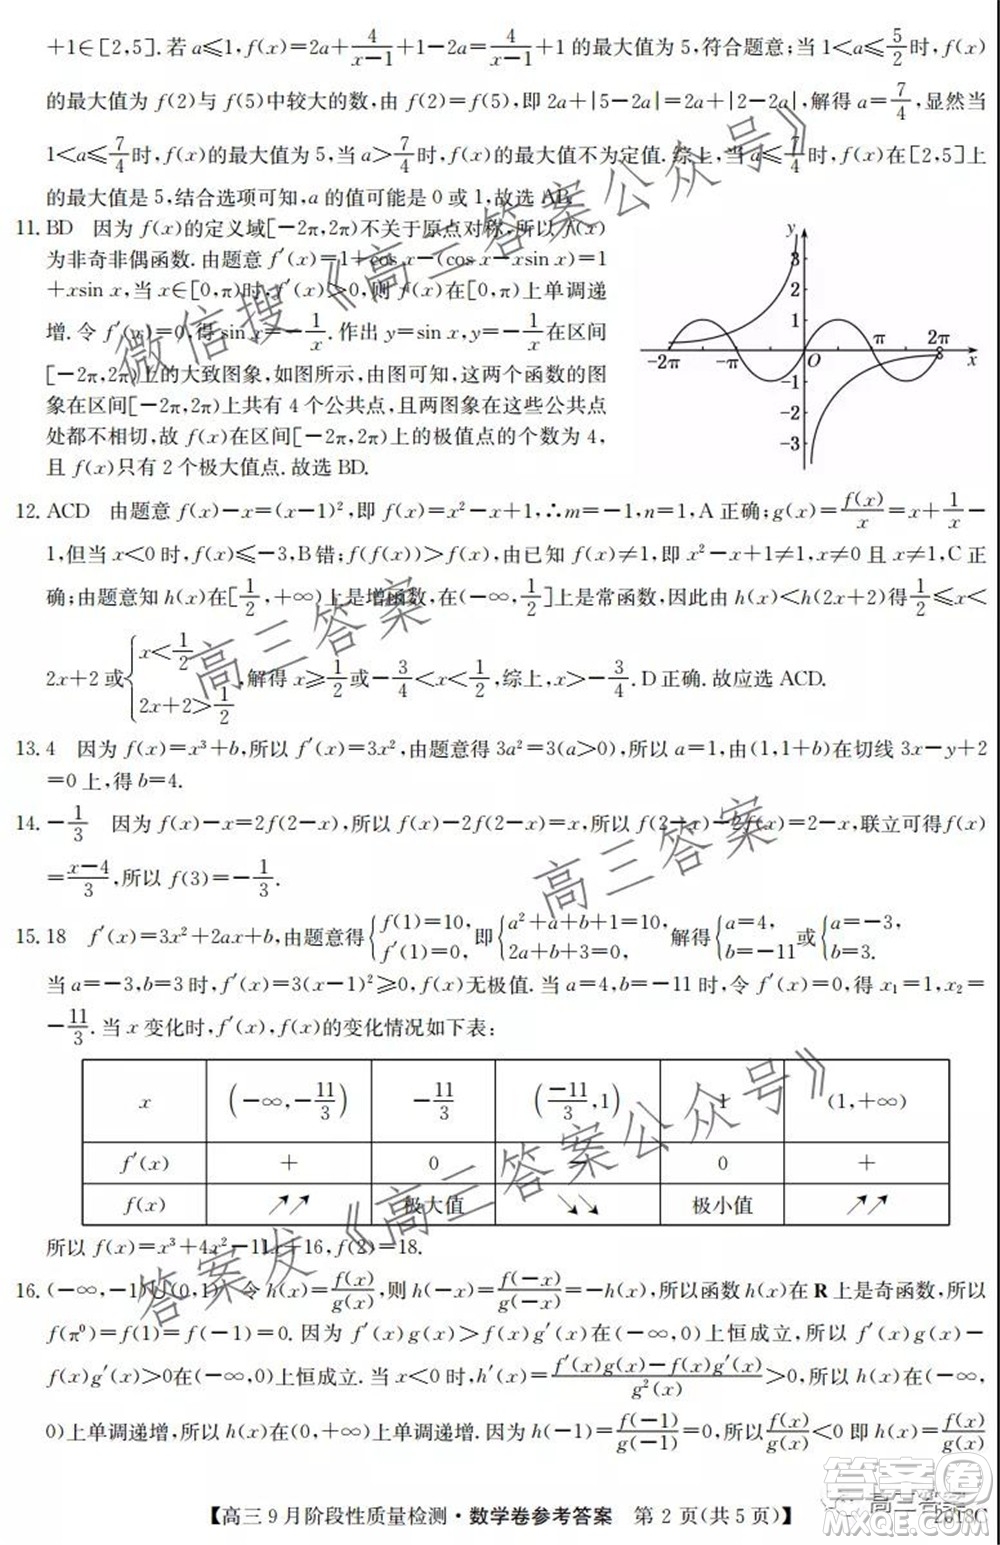 +1∈[2,5].若 a⩽1,f(x)=2a+4/(x−1)+1−2a=4/(x−1)+1 的最大值为 5,符合题意;当 1<a⩽5/2时,f(x)
的最大值为 f(2)与 f(5)中较大的数,由 f(2)=f(5),即 2a+|5−2a|=2a+|2−2a|,解得 a=7/4,显然当
1<a⩽7/4时,f(x)的最大值为 5,当 a>7/4时,f(x)的最大值不为定值.综上,当 a⩽7/4时,f(x)在[2,5]上
的最大值是 5,结合选项可知,a 的值可能是 0 或 1,故选 AB.
11.BD 因为 f(x)的定义域[−2π,2π)不关于原点对称,所以 f(x)
为非奇非偶函数.由题意 f′(x)=1+cos x−(cos x−xsin x)=1
+xsin x,当 x∈[0,π)时,f′(x)>0,则 f(x)在[0,π)上单调递
增.令 f′(x)=0,得 sin x=−1/x.作出 y=sin x,y=−1/x在区间
[−2π,2π)上的大致图象,如图所示,由图可知,这两个函数的图
象在区间[−2π,2π)上共有 4 个公共点,且两图象在这些公共点
处都不相切,故 f(x)在区间[−2π,2π)上的极值点的个数为 4,
且 f(x)只有 2 个极大值点.故选 BD.
y
3
2
1
−2π −π O π 2π x
−1
−2
−3
12.ACD 由题意 f(x)−x=(x−1)²,即 f(x)=x²−x+1,∴m=−1,n=1,A 正确;g(x)=f(x)/x=x+1/x−
1,但当 x<0 时,f(x)⩽−3,B 错;f(f(x))>f(x),由已知 f(x)≠1,即 x²−x+1≠1,x≠0 且 x≠1,C 正
确;由题意知 h(x)在[1/2,+∞)上是增函数,在(−∞,1/2]上是常函数,因此由 h(x)<h(2x+2)得1/2⩽x<
2x+2 或{x<1/2 2x+2>1/2,解得 x⩾1/2或−3/4<x<1/2,综上,x>−3/4.D 正确.故应选 ACD.
13.4 因为 f(x)=x³+b,所以 f′(x)=3x²,由题意得 3a²=3(a>0),所以 a=1,由(1,1+b)在切线 3x−y+2
=0 上,得 b=4.
14.−1/3 因为 f(x)−x=2f(2−x),所以 f(x)−2f(2−x)=x,所以 f(2−x)−2f(x)=2−x,联立可得f(x)
=(x−4)/3,所以 f(3)=−1/3.
15.18 f′(x)=3x²+2ax+b,由题意得{f(1)=10, f′(1)=0,即{a²+a+b+1=10, 2a+b+3=0, 解得{a=4, b=−11或{a=−3, b=3.
当 a=−3,b=3 时,f′(x)=3(x−1)²⩾0,f(x)无极值.当 a=4,b=−11 时,令 f′(x)=0,得 x₁=1,x₂=
−11/3.当 x 变化时,f′(x),f(x)的变化情况如下表:
x (−∞,−11/3) −11/3 (−11/3,1) 1 (1,+∞)
f′(x) + 0 − 0 +
f(x) ↗↗ 极大值 ↘↘ 极小值 ↗↗
所以 f(x)=x³+4x²−11x+16,f(2)=18.
16.(−∞,−1)∪(0,1) 令 h(x)=f(x)/g(x),则 h(−x)=f(−x)/g(−x)=−h(x),所以函数 h(x)在 R 上是奇函数,所以
f(π⁰)=f(1)=f(−1)=0.因为 f′(x)g(x)>f(x)g′(x)在(−∞,0)上恒成立,所以 f′(x)g(x)−
f(x)g′(x)>0在(−∞,0)上恒成立.当 x<0时,h′(x)=(f′(x)g(x)−f(x)g′(x))/g²(x)>0,所以 h(x)在(−∞,
0)上单调递增,所以 h(x)在(0,+∞)上单调递增.因为 h(−1)=f(−1)/g(−1)=0,所以f(x)/g(x)<0 即 h(x)=f(x)/g(x)
【高三 9 月阶段性质量检测·数学卷参考答案 第 2 页(共 5 页)】
2018C
微信搜《高三答案公众号》
高三答案
高三答案
答案发《高三答案公众号》
高三答案
答案圈
MXQE.COM